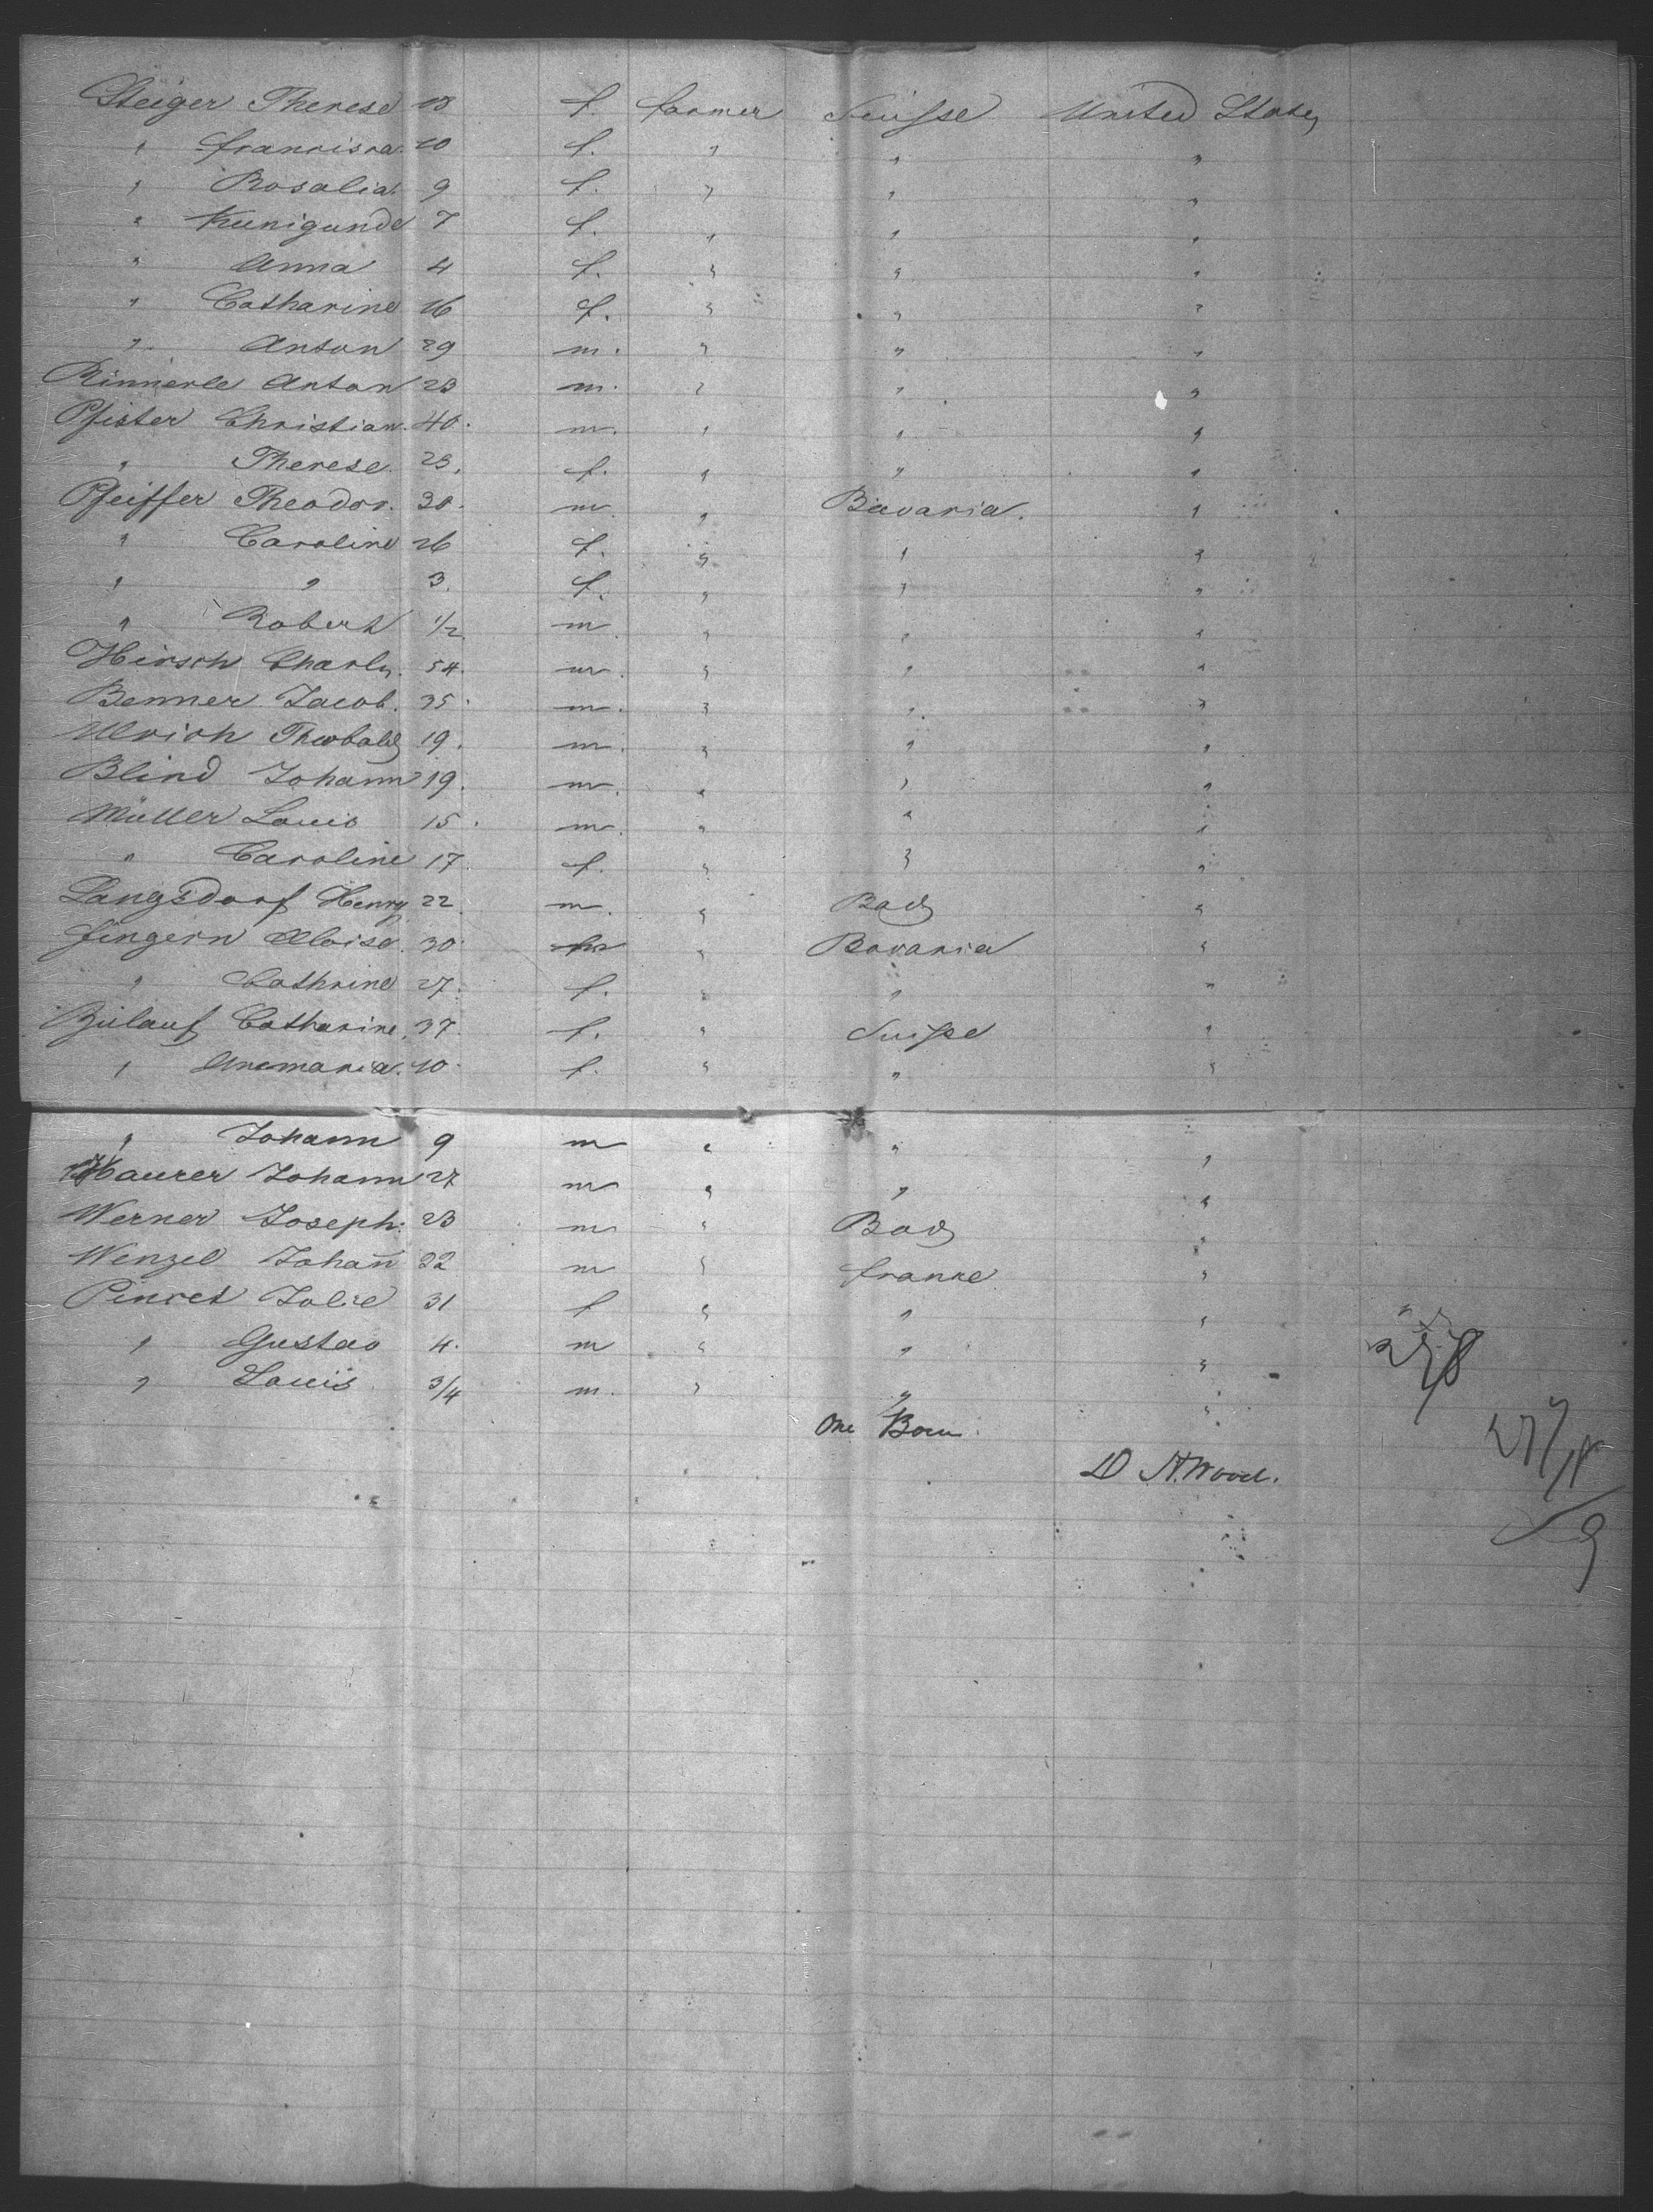 Steiger Therese 18 f. farmer Suisse United States
" Francisca. 10 f. " " "
" Rosalia. 9 f. " " "
" Kunigunde 7 f. " " "
" Anna 4 f. " " "
" Catharine 16 f. " " "
" Anton 29 m. " " "
Rimmerle Anton 23 m. " " "
Pfister Christian. 40. m. " " "
" Therese. 23. f. " " "
Pfeiffer Theodor. 30. m. " Bavaria. "
" Caroline 26 f. " " "
" " 3. f. " " "
" Robert 1/2 m " " "
Hirsch Charls. 54. m. " " "
Benner Jacob. 35. m. " " "
Ullrich Theobald 19. m. " " "
Blind Johann 19. m. " " "
Müller Louis 15. m. " " "
" Caroline 17. f. " " "
Langsdorf Henry 22. m. " Bad "
Fingern Aloise. 30. m " Bavaria "
" Cathrine 27. f. " " "
Bülauf Catharine. 37. f. " Suisse "
" Anemaria. 10. f. " " "
" Johann 9 m " " "
Maurer Johann 27 m " " "
Werner Joseph. 23 m " Bad "
Wenzel Johan̄ 22 m " France "
Pincet Jolie 31 f " " "
" Gustav 4. m " " "
" Louis 3/4 m. " " "
One Born.
D N. Wood.
278